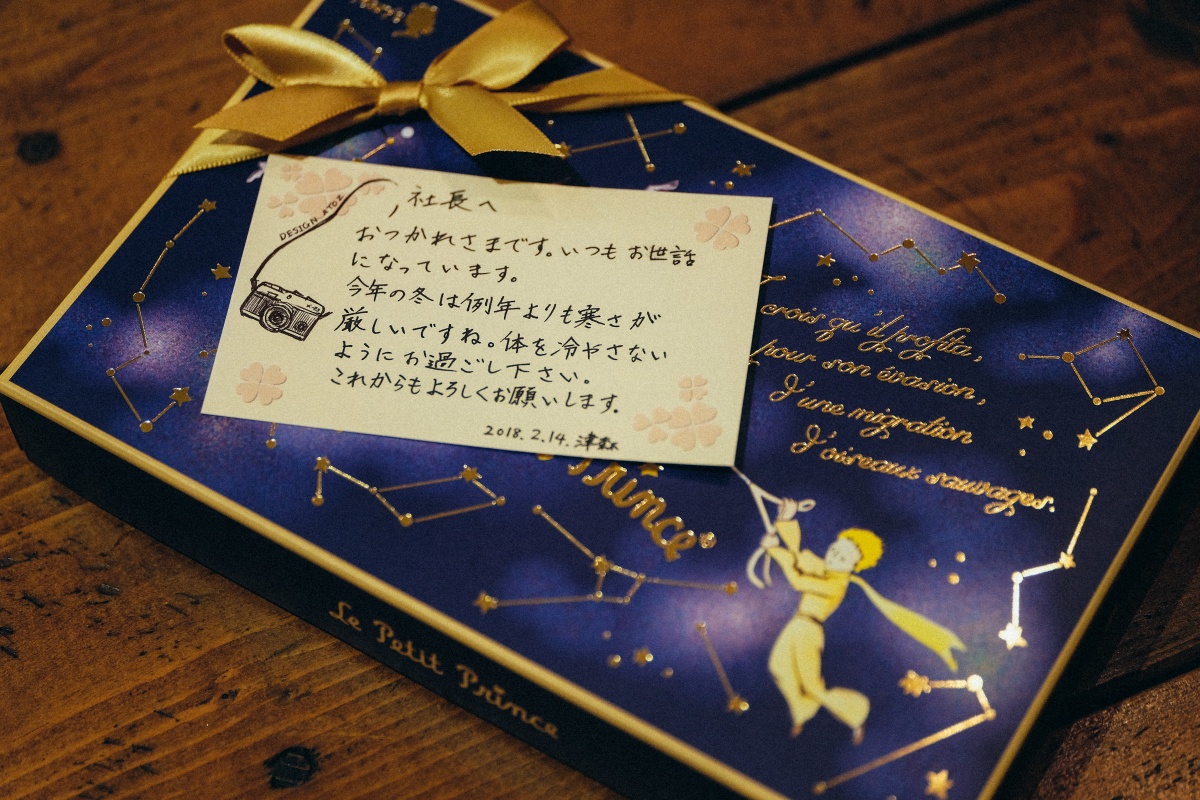 DESIGN ATOZ
社長へ
おつかれさまです。いつもお世話
になっています。
今年の冬は例年よりも寒さが
厳しいですね。体を冷やさない
ようにお過ごし下さい。
これからもよろしくお願いします。
2018.2.14.
crois qu'il profita,
pour son évasion,
d'une migration
d'oiseaux sauvages.
Prince
Le Petit Prince